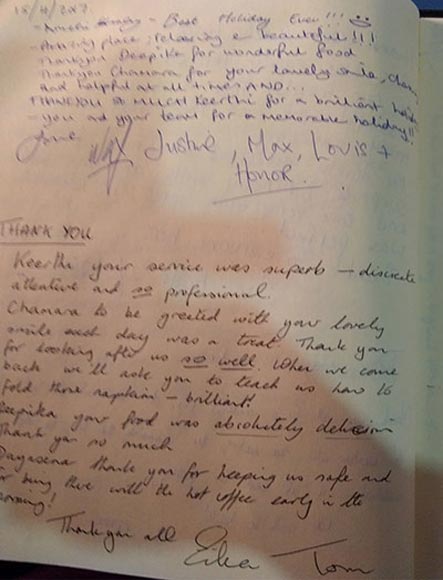 - Best Holiday Ever!!!
- Amazing place, relaxing & beautiful!!!
Thankyou Deepika for wonderful food
Thankyou Chamara for your lovely smile,
and helpful at all times AND...
THANKYOU SO MUCH Keerthi for a brilliant
- you and your team for a memorable holiday!!
Love
Justine, Max, Louis +
Honor.
THANK YOU
Keerthi your service was superb - discrete
attentive and so professional.
Chamara to be greeted with your lovely
smile each day was a treat. Thank you
for looking after us so well. When we come
back we'll ask you to teach us how to
fold those napkins - brilliant!
Deepika your food was absolutely delicious
Thank you so much
Dayasena thank you for keeping us safe and
for being there with the hot coffee early in the
morning!
Thank you all
Tom